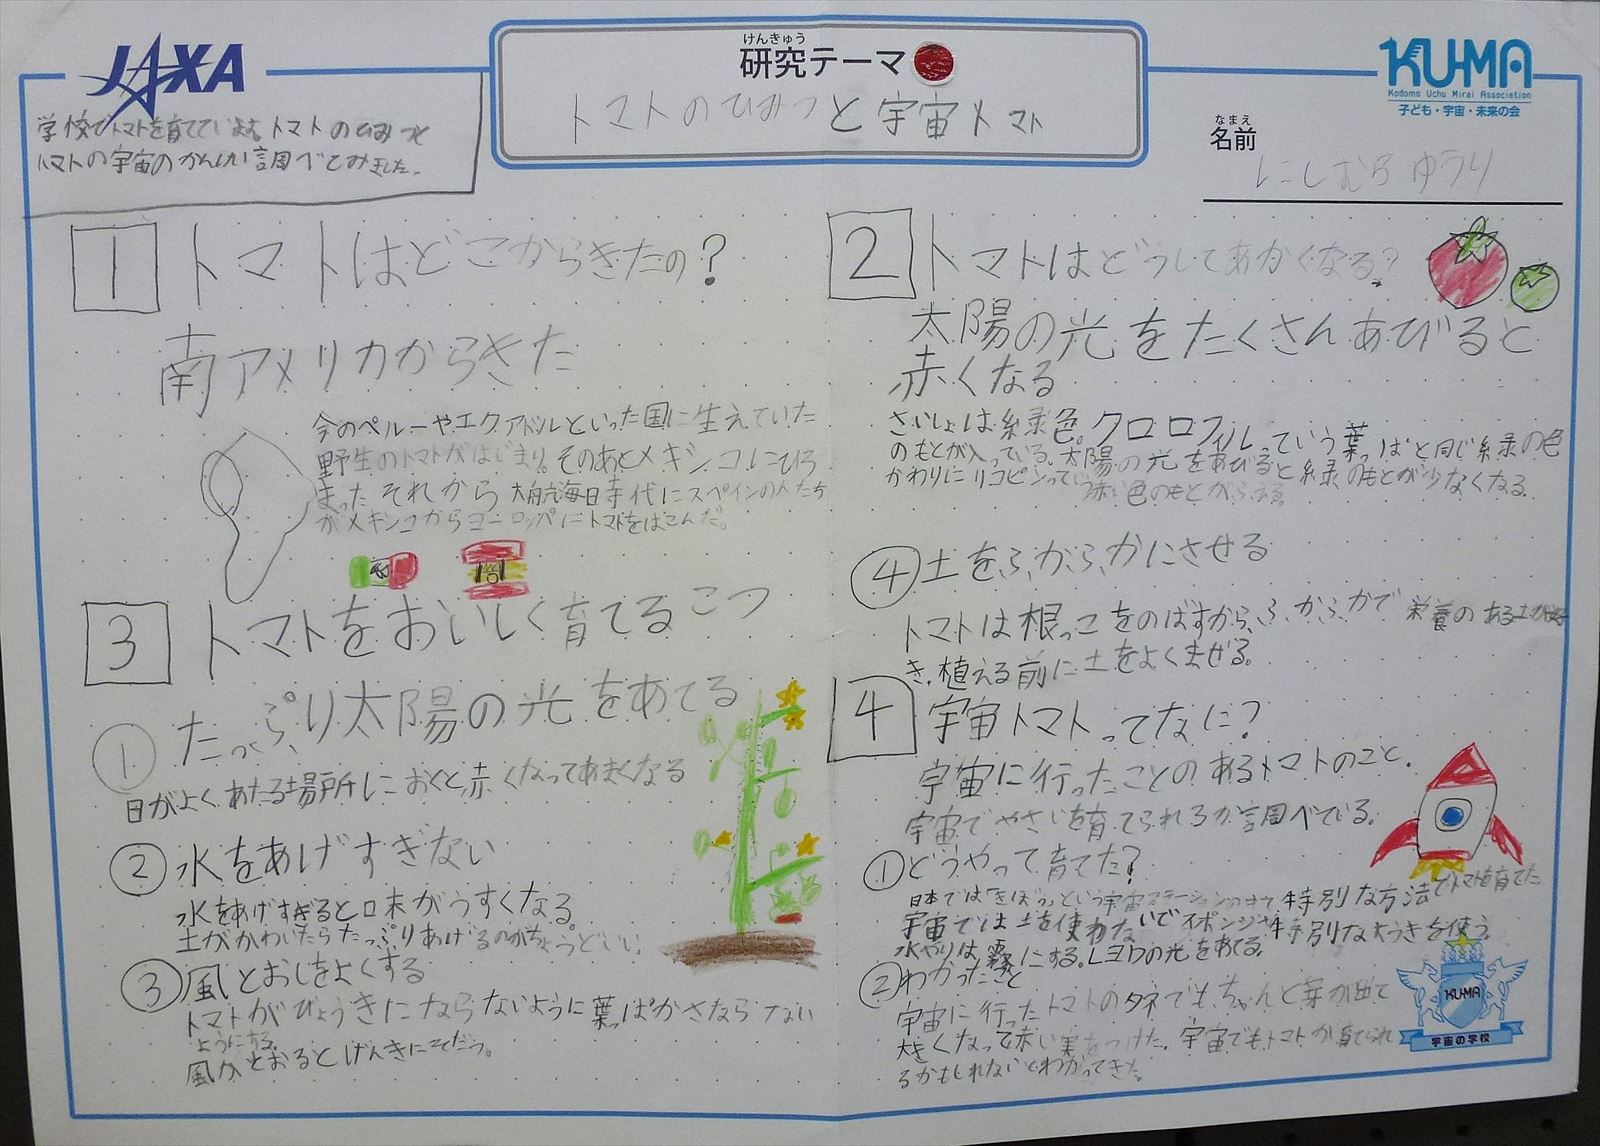 JAXA
けんきゅう
研究テーマ
トマトのひみつと宇宙トマト
KU-MA
Kodomo Uchu Mirai Association
子ども・宇宙・未来の会
なまえ
名前
にしむらゆうり
学校でトマトを育てています。トマトのひみつと
トマトの宇宙のかんけい調べてみました。
1 トマトはどこからきたの?
南アメリカからきた
今のペルーやエクアドルといった国に生えていた
野生のトマトがはじまり。そのあとメキシコにひろ
まった それから 大航海時代にスペインの人たち
がメキシコからヨーロッパにトマトをはこんだ。
2 トマトはどうしてあかくなる?
太陽の光をたくさんあびると
赤くなる
さいしょは緑色。クロロフィルっていう葉っぱと同じ緑の色
のもとが入っている。太陽の光をあびると緑のもとが少なくなる
かわりにリコピンっていう赤い色のもとが
3 トマトをおいしく育てるこつ
① たっぷり太陽の光をあてる
日がよくあたる場所におくと赤くなってあまくなる
② 水をあげすぎない
水をあげすぎると味がうすくなる。
土がかわいたらたっぷりあげるのがちょうどいい
③ 風とおしをよくする
トマトがびょうきにならないように葉っぱかさならない
ようにする。
風がとおるとげんきにそだつ。
④ 土をふかふかにさせる
トマトは根っこをのばすから、ふかふかで栄養のある土が好
き、植える前に土をよくまぜる。
4 宇宙トマトってなに?
宇宙に行ったことのあるトマトのこと。
宇宙でやさいを育てられるか調べている。
① どうやって育てた?
日本では「きぼう」という宇宙ステーションの中で特別な方法でトマトを育てた
宇宙では土を使わないでスポンジや特別なようきを使う。
水やりは霧にする。LEDの光をあてる。
② わかったこと
宇宙に行ったトマトのタネでもちゃんと芽が出て
大きくなって赤い実をつけた。宇宙でもトマトが育てられ
るかもしれないとわかってきた。
KU-MA
宇宙の学校